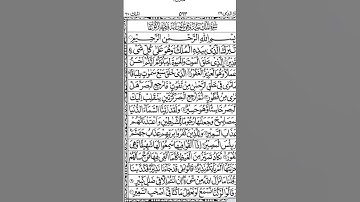 بِسْمِ اللّٰهِ الرَّحْمٰنِ الرَّحِيْمِ
تَبٰرَكَ الَّذِيْ بِيَدِهِ الْمُلْكُ وَهُوَ عَلٰى كُلِّ شَيْءٍ
قَدِيْرُ الَّذِيْ خَلَقَ الْمَوْتَ وَالْحَيٰوةَ لِيَبْلُوَكُمْ اَيُّكُمْ اَحْسَنُ
عَمَلًا وَهُوَ الْعَزِيْزُ الْغَفُوْرُ الَّذِيْ خَلَقَ سَبْعَ سَمٰوٰتٍ طِبَاقًا
مَا تَرٰى فِيْ خَلْقِ الرَّحْمٰنِ مِنْ تَفٰوُتٍ فَارْجِعِ الْبَصَرَ هَلْ
تَرٰى مِنْ فُطُوْرٍ ثُمَّ ارْجِعِ الْبَصَرَ كَرَّتَيْنِ يَنْقَلِبْ اِلَيْكَ
الْبَصَرُ خَاسِئًا وَّهُوَ حَسِيْرٌ وَلَقَدْ زَيَّنَّا السَّمَاءَ الدُّنْيَا
بِمَصَابِيْحَ وَجَعَلْنٰهَا رُجُوْمًا لِّلشَّيٰطِيْنِ وَاَعْتَدْنَا لَهُمْ
عَذَابَ السَّعِيْرِ وَلِلَّذِيْنَ كَفَرُوْا بِرَبِّهِمْ عَذَابُ جَهَنَّمَ
وَبِئْسَ الْمَصِيْرُ اِذَا اُلْقُوْا فِيْهَا سَمِعُوْا لَهَا شَهِيْقًا وَّهِيَ
تَفُوْرُ تَكَادُ تَمَيَّزُ مِنَ الْغَيْظِ كُلَّمَا اُلْقِيَ فِيْهَا فَوْجٌ سَاَلَهُمْ
خَزَنَتُهَا اَلَمْ يَاْتِكُمْ نَذِيْرٌ قَالُوْا بَلٰى قَدْ جَاءَنَا نَذِيْرٌ فَكَذَّبْنَا
وَقُلْنَا مَا نَزَّلَ اللّٰهُ مِنْ شَيْءٍ اِنْ اَنْتُمْ اِلَّا فِيْ ضَلٰلٍ كَبِيْرٍ
وَقَالُوْا لَوْ كُنَّا نَسْمَعُ اَوْ نَعْقِلُ مَا كُنَّا فِيْ اَصْحٰبِ السَّعِيْرِ